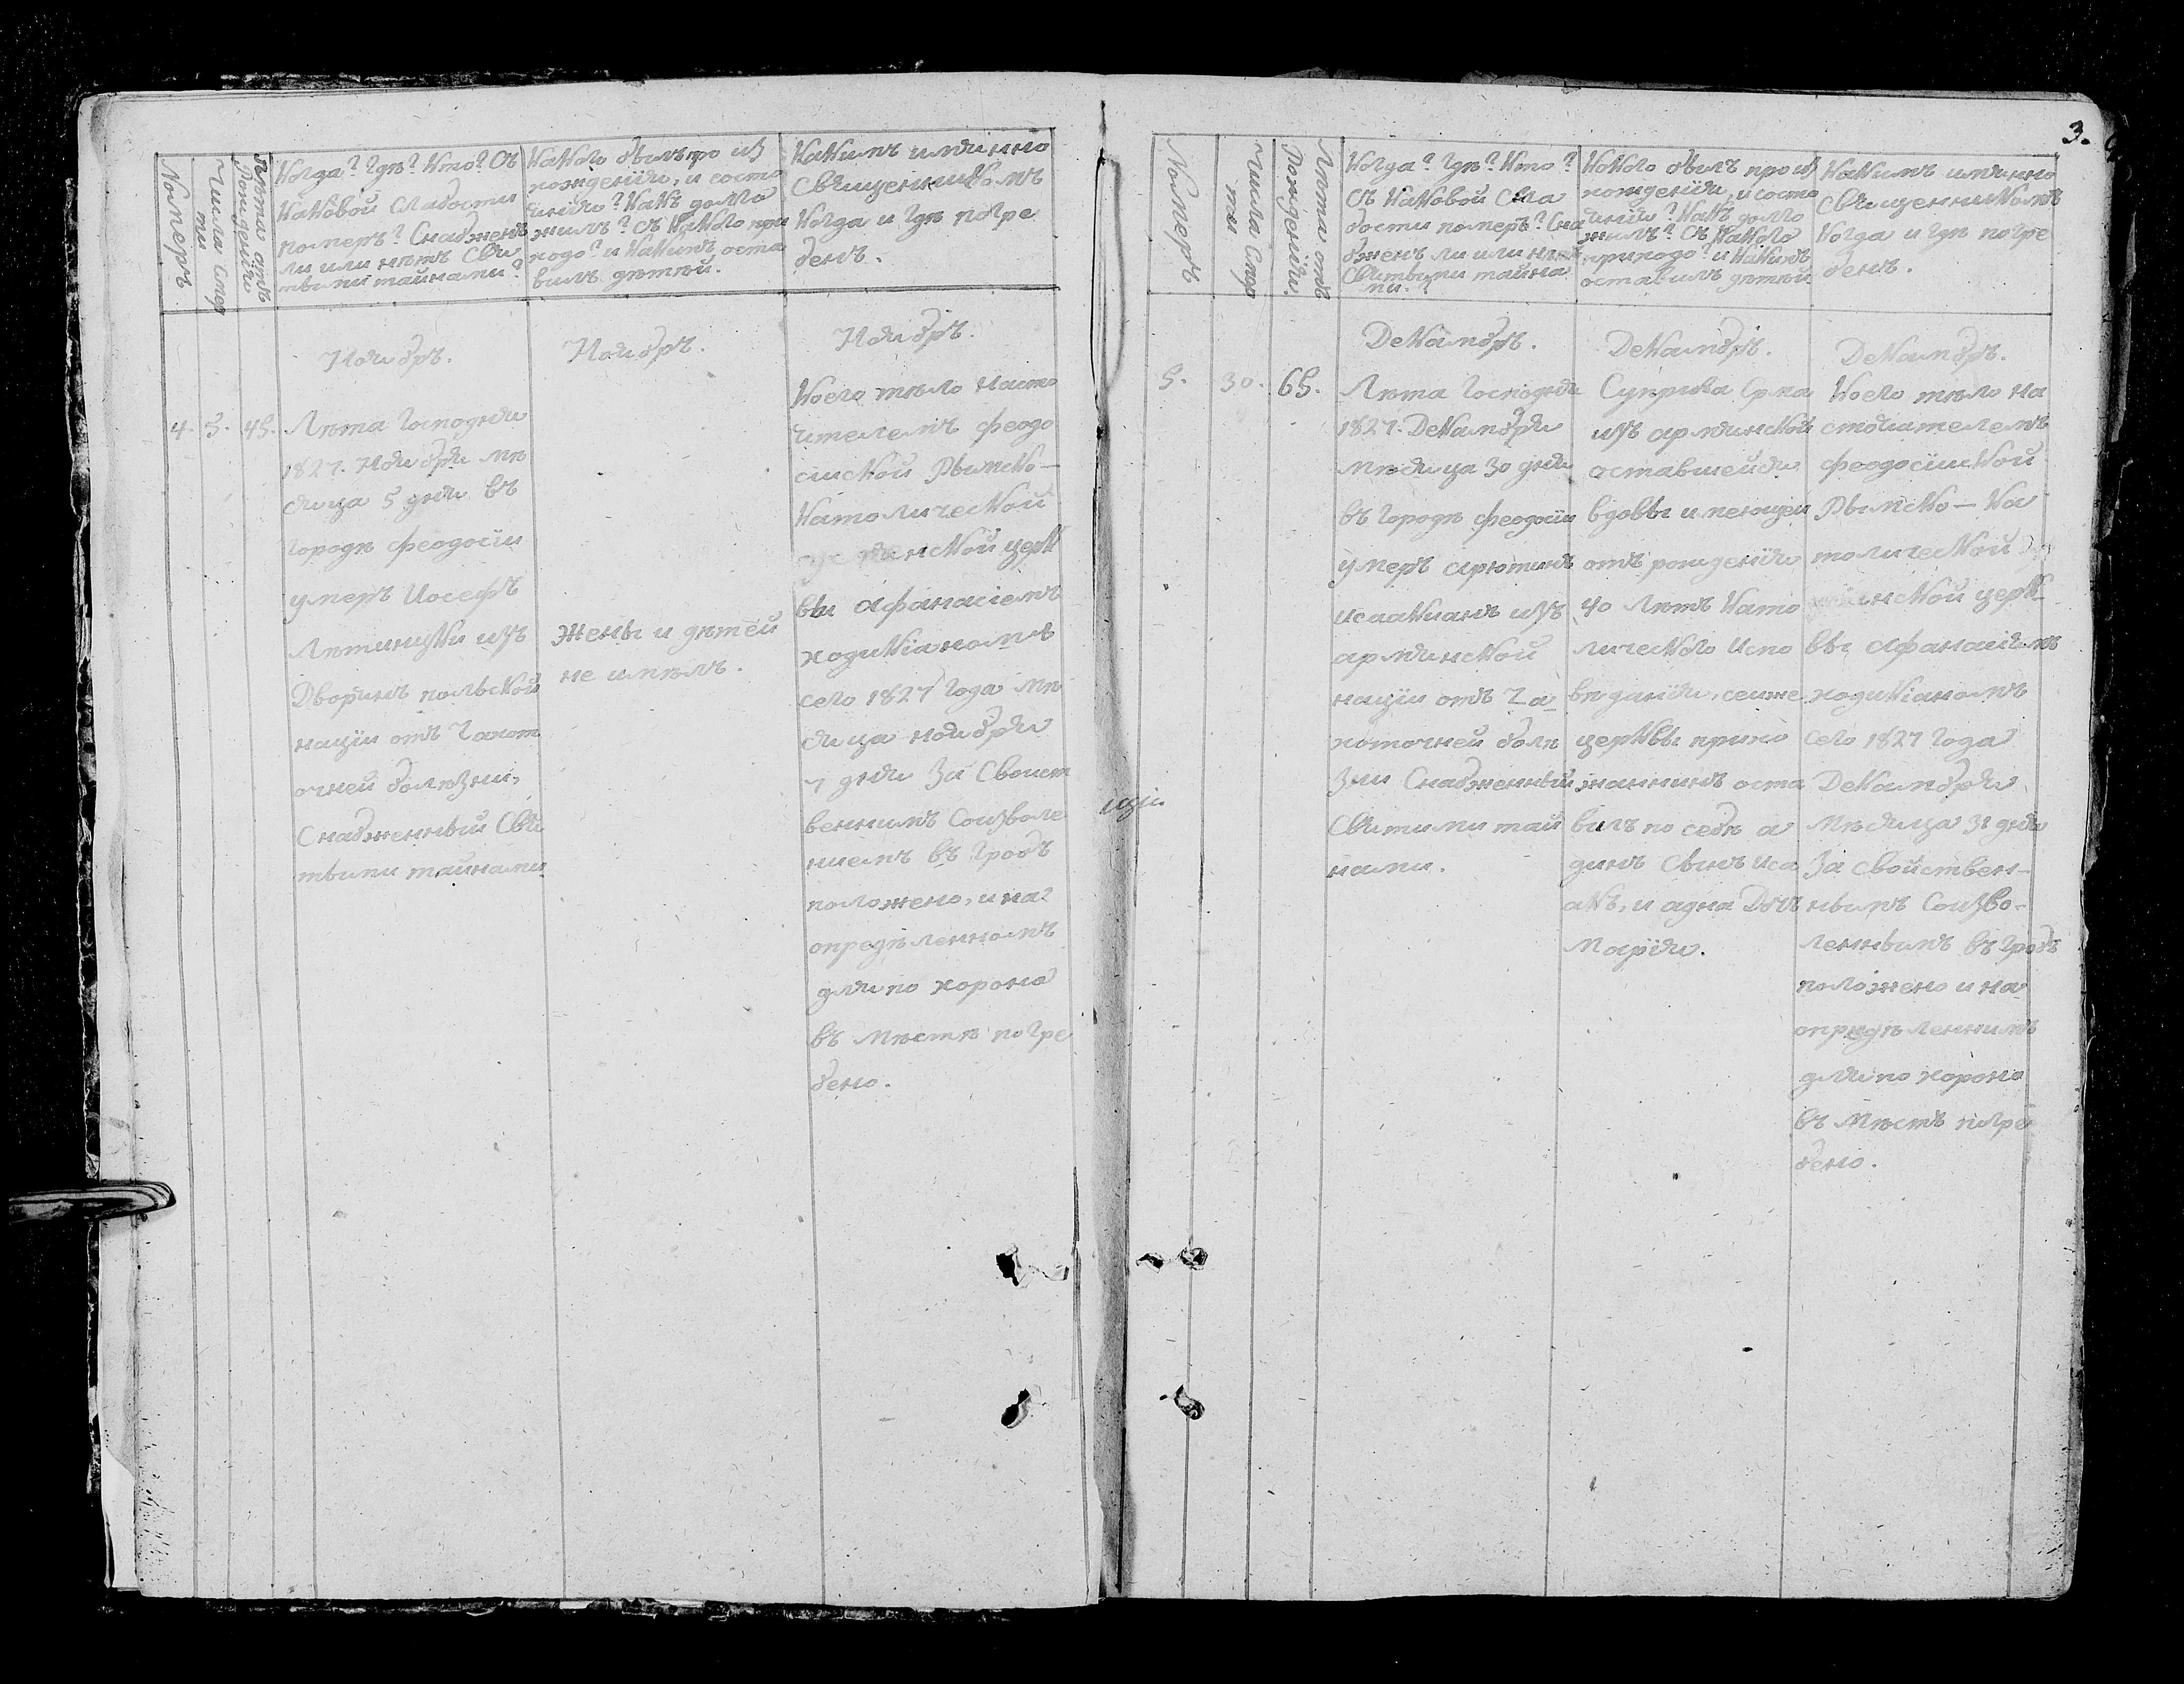 Номеръ
Числа Смер
ти
Лѣта отъ
Рожденiя
Когда? Гдѣ? Кто? Отъ
каковой слабости
померъ? Снабженъ
ли или нѣтъ Свя
тыми тайнами?
Какого былъ про из
хожденiя, и состо
янiя? Какъ долго
жилъ? Съ какого при
ходо? и какихъ оста
вилъ дѣтей.
Какимъ имянно
Священникомъ
Когда и Гдѣ погре
бенъ.
Ноябръ.
Ноябръ.
Ноябръ.
4. 5. 45.
Лѣта Господня
1827. Ноября мѣ
сяца 5 дня въ
городѣ Феодосiи
умеръ Иосефъ
изъ
Дворянъ польской
нацiи отъ Чахот
очней болѣзни,
Снабженный Свя
тыми тайнами
жены и дѣтей
не имѣлъ.
Коего тѣло насто
ятелемъ Феодо
сiиской Рымско-
Католической
церк
вы Афанасiемъ
ходикiаномъ
сего 1827 года мѣ
сяца ноября
7 дня За Свойст
веннимъ Соизволе
ниемъ въ гробъ
положено, и на
определенномъ
для по хороно
въ мѣстѣ погре
бено.
3.
Номеръ
Числа Смер
ти
Лѣта отъ
Рожденiя.
Когда? Гдѣ? Кто?
Отъ каковой Сла
бости померъ? Сна
бженъ ли или нѣтъ
Святыми тайна
ми.?
Какого былъ про из
хожденiя, и состо
янiя? Какъ долго
жилъ? Съ какого
приходо? и какихъ
оставилъ дѣтей
Какимъ имянно
Священникомъ
Когда и гдѣ погре
бенъ.
Декамбръ.
Декамбръ.
Декамбръ.
5. 30. 65.
Лѣта Господня
1827. Декамбря
мѣсяца 30 дня
въ городѣ Феодосiи
умеръ Арютинъ
Исаакианъ изъ
армянской
нацiи отъ Ча
хоточней болѣ
зни Снабженный
Святими тай
нами.
Супрыга Ерма
изъ армянской
оставшейся
вдовы имеющеи
отъ рожденiя
40 лѣтъ Като
лического испо
вѣданiя, сеиже
церквы прихо
жаннинъ оста
вилъ по себѣ а
динъ Сынъ Иса
акъ, и адна Дочъ
Марiя.
Коего тѣло на
стоятелемъ
Феодосiиской
Рымско-Ка
толической
церк-
вы Афанасiемъ
ходикiаномъ
сего 1827 года
Декамбря
мѣсяца 31 дня
За свойствен-
нымъ Соизво-
леннымъ въ гробъ
положено и на
определеннимъ
для по хороно
въ мѣстѣ погре
бено.